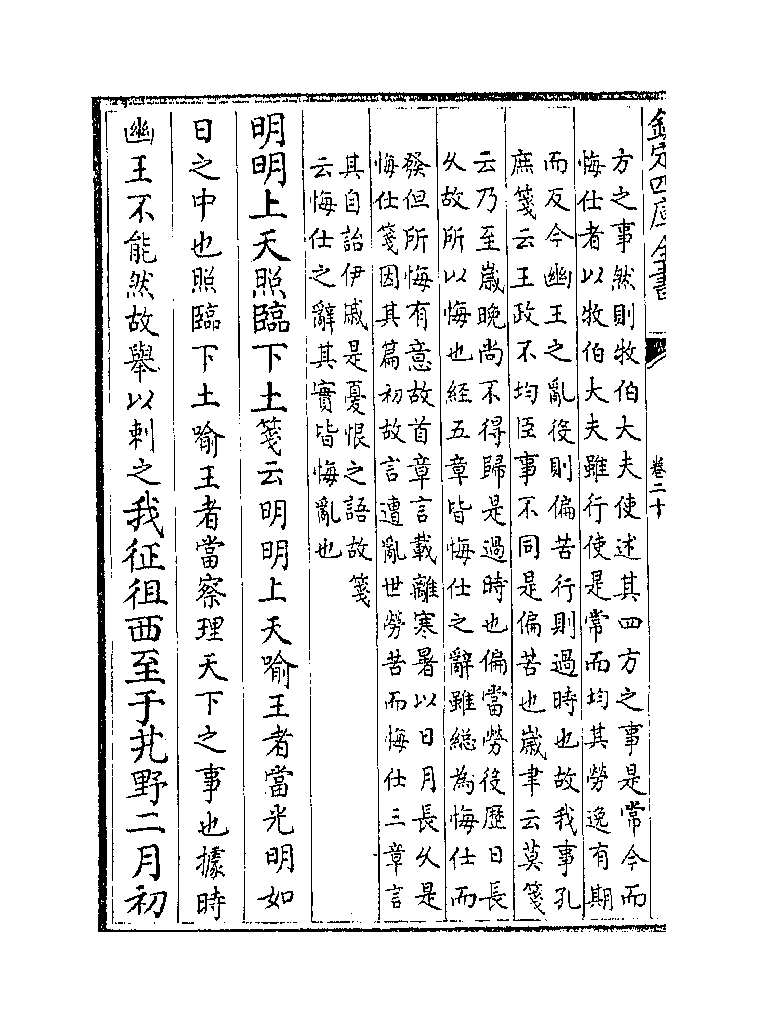 欽定四庫全書
卷二十
方之事然則牧伯大夫使述其四方之事是常今而
悔仕者以牧伯大夫雖行使是常而均其勞逸有期
而反今幽王之亂役則偏苦行則過時也故我事孔
庶箋云王政不均臣事不同是偏苦也歲聿云莫箋
云乃至歲晚尚不得歸是過時也偏當勞役歴日長
久故所以悔也經五章皆悔仕之辭雖緫為悔仕而
發但所悔有意故首章言載離寒暑以日月長久是
悔仕箋因其篇初故言遭亂世勞苦而悔仕三章言
其自詒伊戚是憂恨之語故箋
云悔仕之辭其實皆悔亂也
明明上天照臨下土箋云明明上天喻王者當光明如
日之中也照臨下土喻王者當察理天下之事也據時
幽王不能然故舉以刺之我征徂西至于艽野二月初